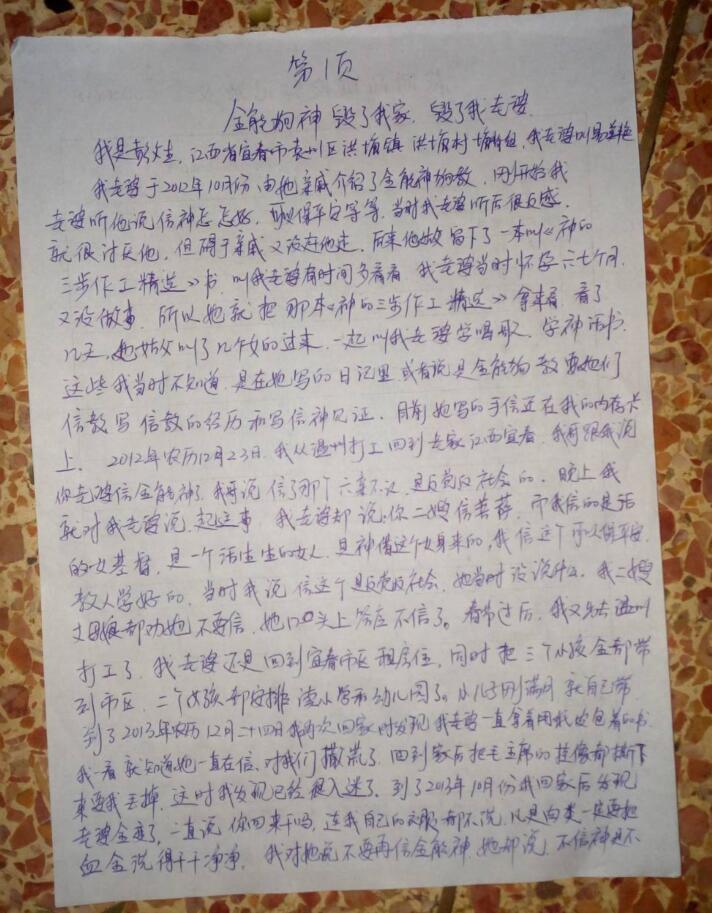 第1页
全能狗神 毁了我家, 毁了我老婆
我是彭 江西省宜春市袁州区洪塘镇 洪塘村 组, 我老婆叫易
我老婆于2012年10月份 由她亲戚介绍了全能神狗教, 刚开始我
老婆听他说信神怎怎好, 可以保平安等等, 当时我老婆听后很反感,
就很讨厌他, 但碍于亲戚又没赶他走, 后来他就留下了一本叫《神的
三步作工精选》书 叫我老婆有时间多看看 我老婆当时怀孕六七个月
又没做事, 所以她就把那本《神的三步作工精选》拿来看 看了
几天, 她姑父叫了几个女的过来 一起叫我老婆学唱歌, 学神话书,
这些我当时不知道 是在她写的日记里 或者说是全能狗教要她们
信教写信教的经历和写信神见证, 目前她写的手信还在我的内存卡
上, 2012年农历12月23日, 我从温州打工回到老家江西宜春, 我哥跟我说
你老婆信全能神了, 我哥说信了那个六亲不认 是反党反社会的, 晚上我
就对我老婆说起这事 我老婆却说: 你二嫂信菩萨, 而我信的是活
的女基督, 是一个活生生的女人, 是神借这个女身来的, 我信这个可以保平安,
教人学好的, 当时我说信这个是反党反社会, 她当时没说什么, 我二嫂
丈母娘都劝她不要信, 她口头上答应不信了。春节过后, 我又去温州
打工了, 我老婆还是回到宜春市区租房住, 同时把三个小孩全部带
到市区, 二个女孩都安排读小学和幼儿园了。小儿子刚满月就自己带,
到了2013年农历12月二十四日我再次回家时发现我老婆一直拿着用我皮包着的书
我一看就知道她一直在信, 对我们撒谎了, 回到家后把毛主席的挂像都撕下
来要我丢掉, 这时我发现已经很入迷了, 到了2013年10月份我回家后发现
老婆全变了, 一直说你回来干吗, 连我自己的衣服都不洗, 凡是肉类一定要把
血全洗得干干净净, 我对她说不要再信全能神, 她却说, 不信神是不